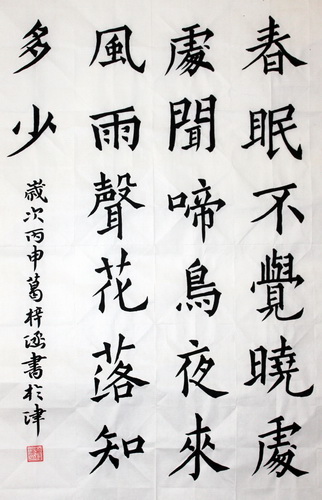 春眠不覺曉處
處聞啼鳥夜來
風雨聲花落知
多少
歲次丙申葛梓涵書於津